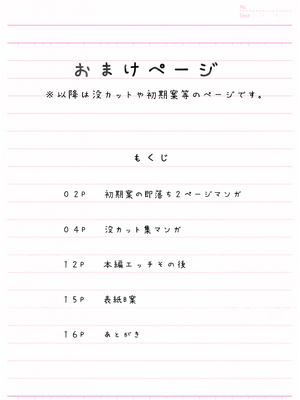 おまけページ
※以降は没カットや初期案等のページです。
もくじ
02P 初期案の即落ち2ページマンガ
04P 没カット集マンガ
12P 本編エッチその後
15P 表紙B案
16P あとがき